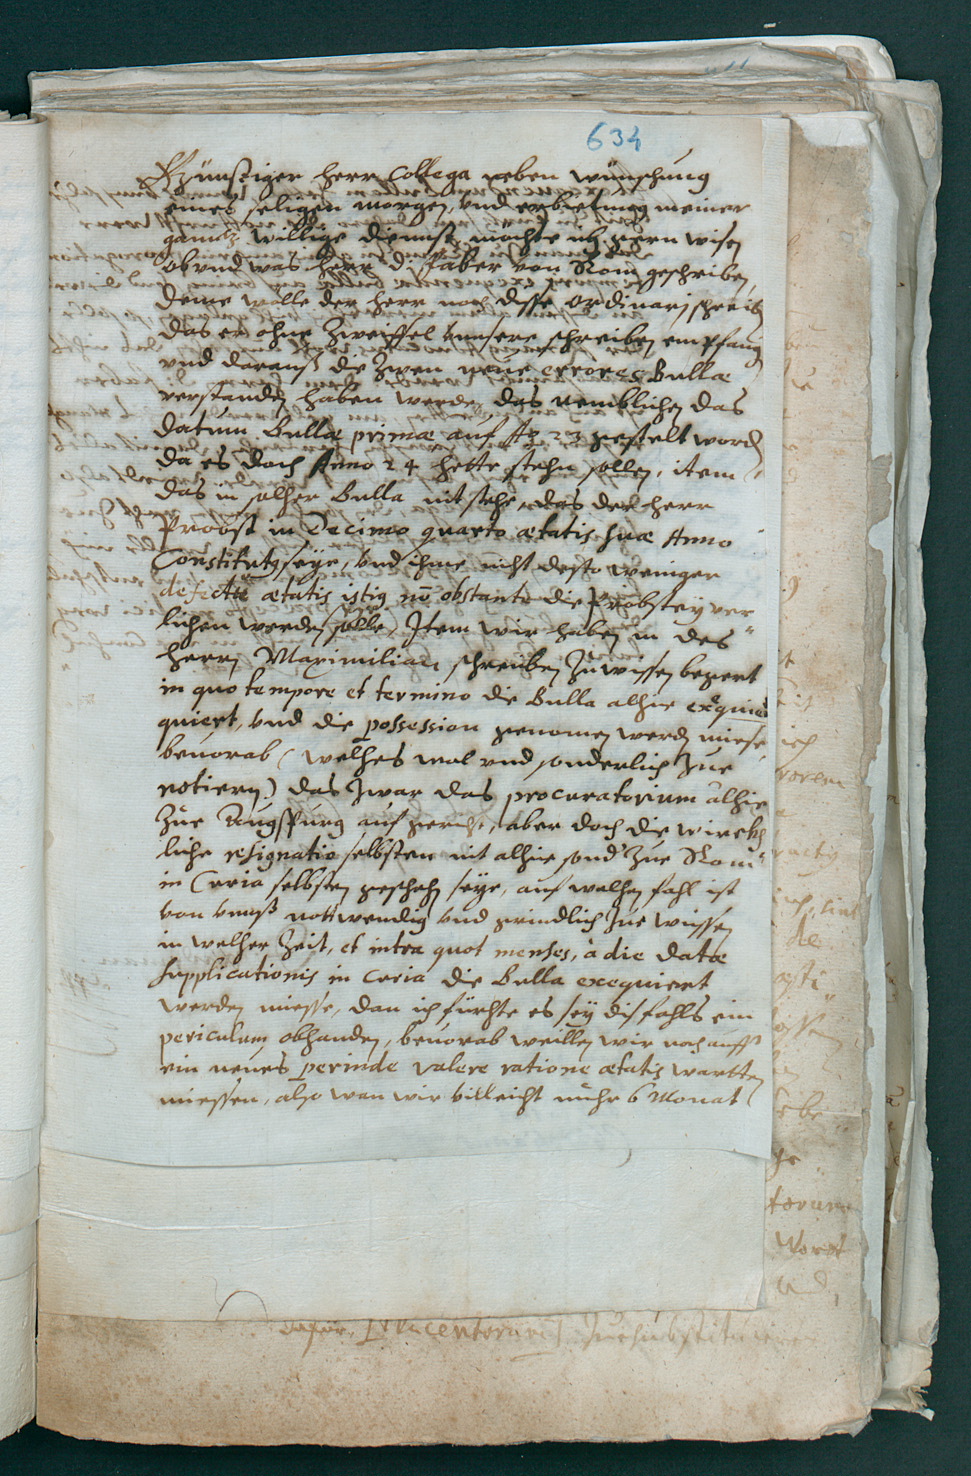 634
Gönstiger Herr Collega neben wünschung
eines seligen morgen, vnd erbietung meiner
gantz willige diennst, möchte ich gern wisen
ob vnd was Herr D. Faber von Rom geschriben,
deme wolle der Herr noch disse ordinarj schreiben
das er ohne Zweiffel vnnsere schreiben empfang
vnd darauß die Zwen neüe errores Bullæ
verstanden haben werde, das nemblichen das
datum Bullæ primæ auf Ao 23 gestelt word
da es doch Anno 24 hette stehn sollen, item
das in solher Bulla nit stehe, das der herr
Probst in Decimo quarto ætatis suæ Anno
Constitutus seye, vnd ihme nicht desto weniger
defectu ætatis istius nō obstante die Probstey ver
lichen werden solle, Item wir haben in des
Herrn Maximilian schreiben Zu wissen begert
in quo tempore et termino die Bulla alhie exequie
quiert, vnd die possession genomen werden miese,
beuorab (welhes wol vnd sonderlich Zue
notiern) das Zwar das procuratorium alhie
Zue Augspurg auf gericht, aber doch die wirckh
liche resignatio selbsten nit alhie sond' Zue Rom
in Curia selbsten geschehen seye, auf welhen fahl ist
von vnnß nottwendig vnd grindlich Zue wissen
in welher Zeit, et intra quot menses, à die datæ
supplicationis in Curia die Bulla exequiert
werden miesse, dan ich fürchte es sey disfahls ein
periculum obhanden, beuorab weillen wir noch auff
ein neues perinde valere ratione ætatis wartten
miessen, also wan wir villeicht mehr 6 Monat